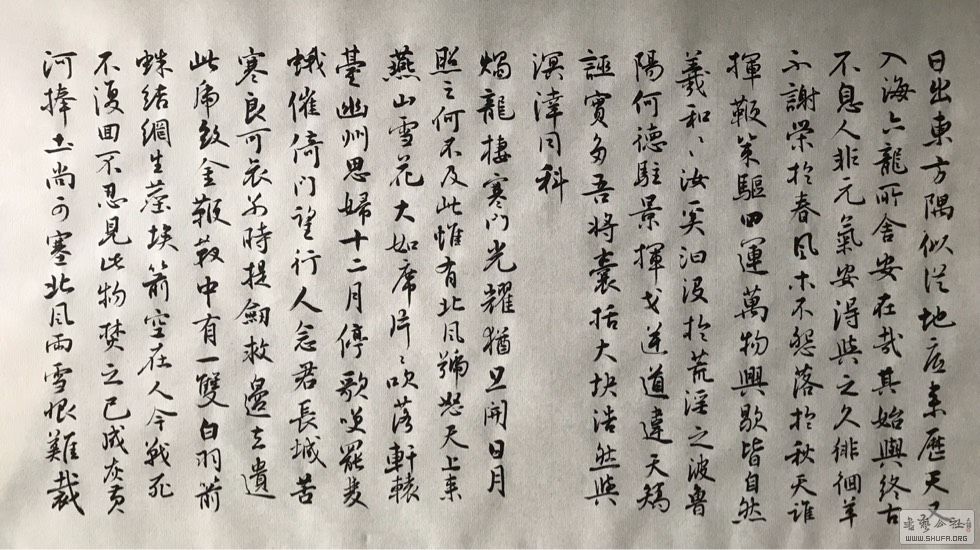 日出東方隅似從地底來歷天又
入海六龍所舍安在哉其始與終古
不息人非元氣安得與之久徘徊草
不謝榮於春風木不怨落於秋天誰
揮鞭策驅四運萬物興歇皆自然
羲和〻汝奚汩沒於荒淫之波魯
陽何德駐景揮戈逆道違天矯
誣實多吾將囊括大塊浩然與
溟涬同科
燭龍棲寒門光耀猶旦開日月
照之何不及此惟有北風號怒天上來
燕山雪花大如席片〻吹落軒轅
臺幽州思婦十二月停歌笑罷雙
蛾催倚門望行人念君長城苦
寒良可哀別時提劍救邊去遺
此虎紋金鞭靫中有一雙白羽箭
蛛結網生塵埃箭空在人今戰死
不復回不忍見此物焚之已成灰黃
河捧土尚可塞北風雨雪恨難裁
WWW.SHUFA.ORG